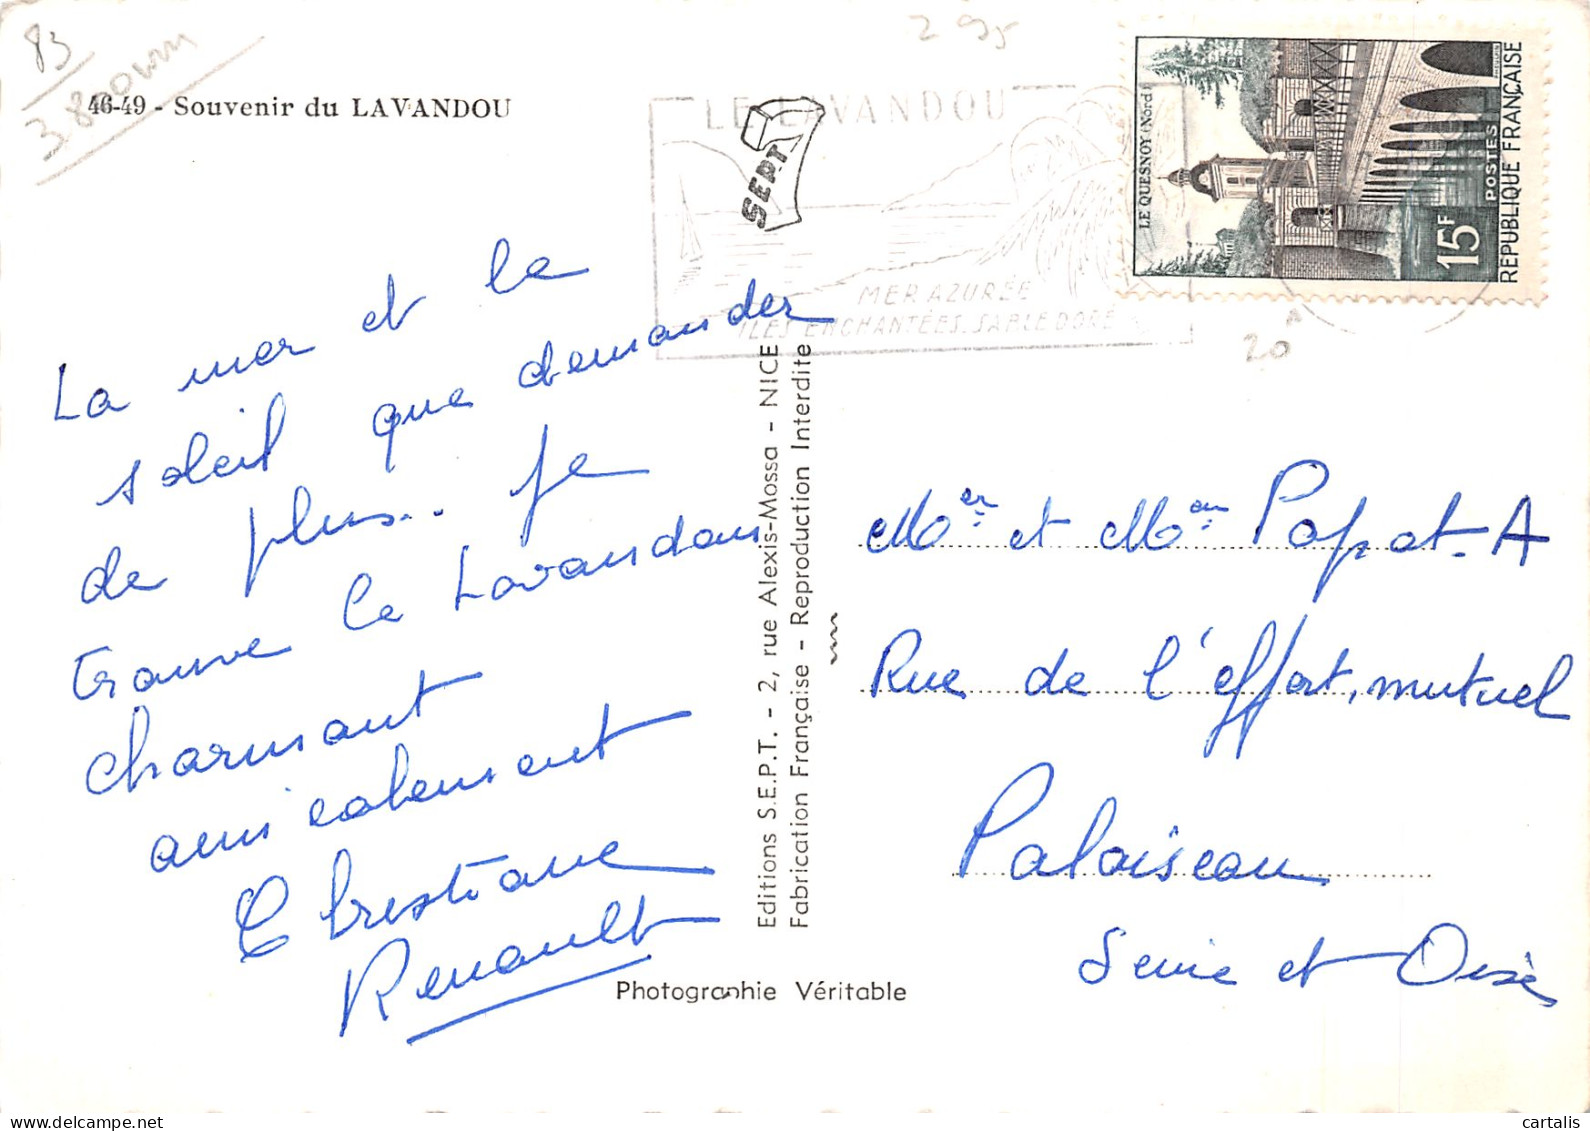 83
2 95
46-49 - Souvenir du LAVANDOU
LE LAVANDOU
MER AZURÉE
ILES ENCHANTÉES. SABLE DORÉ
SEPT
LE QUESNOY (Nord)
15F
POSTES
REPUBLIQUE FRANÇAISE
20
La mer et le
soleil que demander
de plus... je
trouve le Lavandou
charmant
amicalement
Christiane
Renault
Editions S.E.P.T. - 2, rue Alexis-Mossa - NICE
Fabrication Française - Reproduction Interdite
Mer et Mam Papat. A
Rue de l'effort, mutuel
Palaiseau
Seine et Oise
Photographie Véritable
cartalis